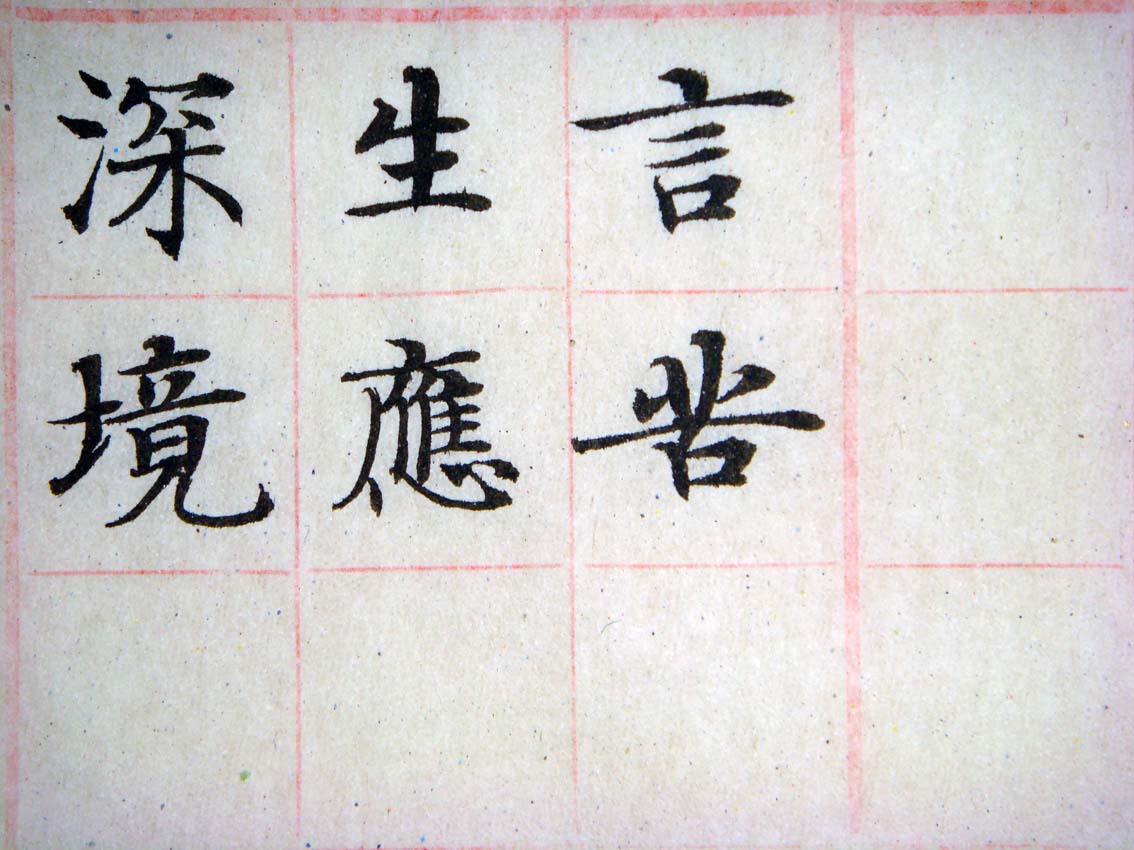 言
生應
深境